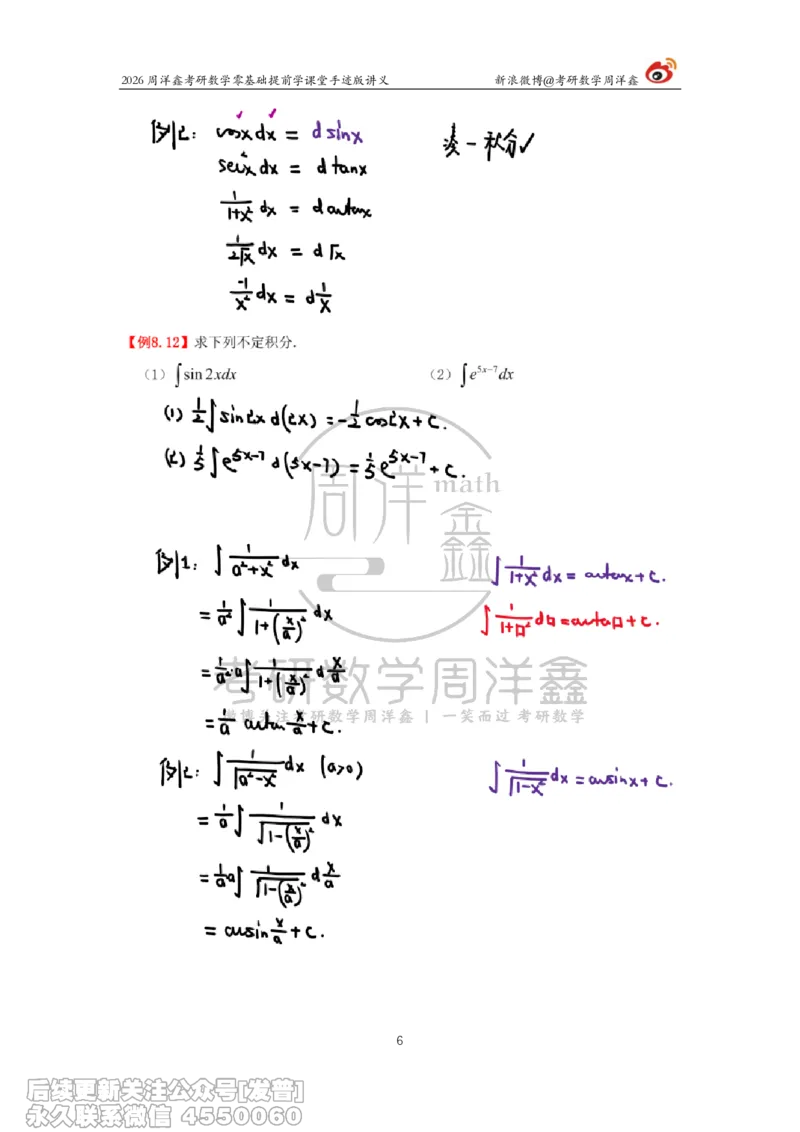 2026 周洋鑫考研数学零基础提前学课堂手迹版讲义 新浪微博@考研数学周洋鑫
例2: cosx dx = d sinx 凑一积分✓
sec²x dx = d tanx
1/(1+x²) dx = d arctanx
1/(2√x) dx = d√x
-1/x² dx = d 1/x
【例8.12】求下列不定积分.
（1）∫sin 2xdx （2）∫e^{5x−7}dx
(1) 1/2 ∫sin2x d(2x) = -1/2 cos2x + C.
(2) 1/5 ∫e^{5x-7} d(5x-7) = 1/5 e^{5x-7} + C.
周洋鑫 math
例1: ∫ 1/(a²+x²) dx ∫ 1/(1+x²) dx = arctanx + C.
= 1/a² ∫ 1/(1+(x/a)²) dx ∫ 1/(1+□²) d□ = arctan□ + C.
= 1/a²·a ∫ 1/(1+(x/a)²) d x/a
考研数学周洋鑫
微博关注考研数学周洋鑫 | 一笑而过 考研数学
= 1/a arctan x/a + C.
例2: ∫ 1/√(a²-x²) dx (a>0) ∫ 1/√(1-x²) dx = arcsinx + C.
= 1/a ∫ 1/√(1-(x/a)²) dx
= 1/a a ∫ 1/√(1-(x/a)²) d x/a
= arcsin x/a + C.
6
后续更新关注公众号[发普]
永久联系微信 4550060